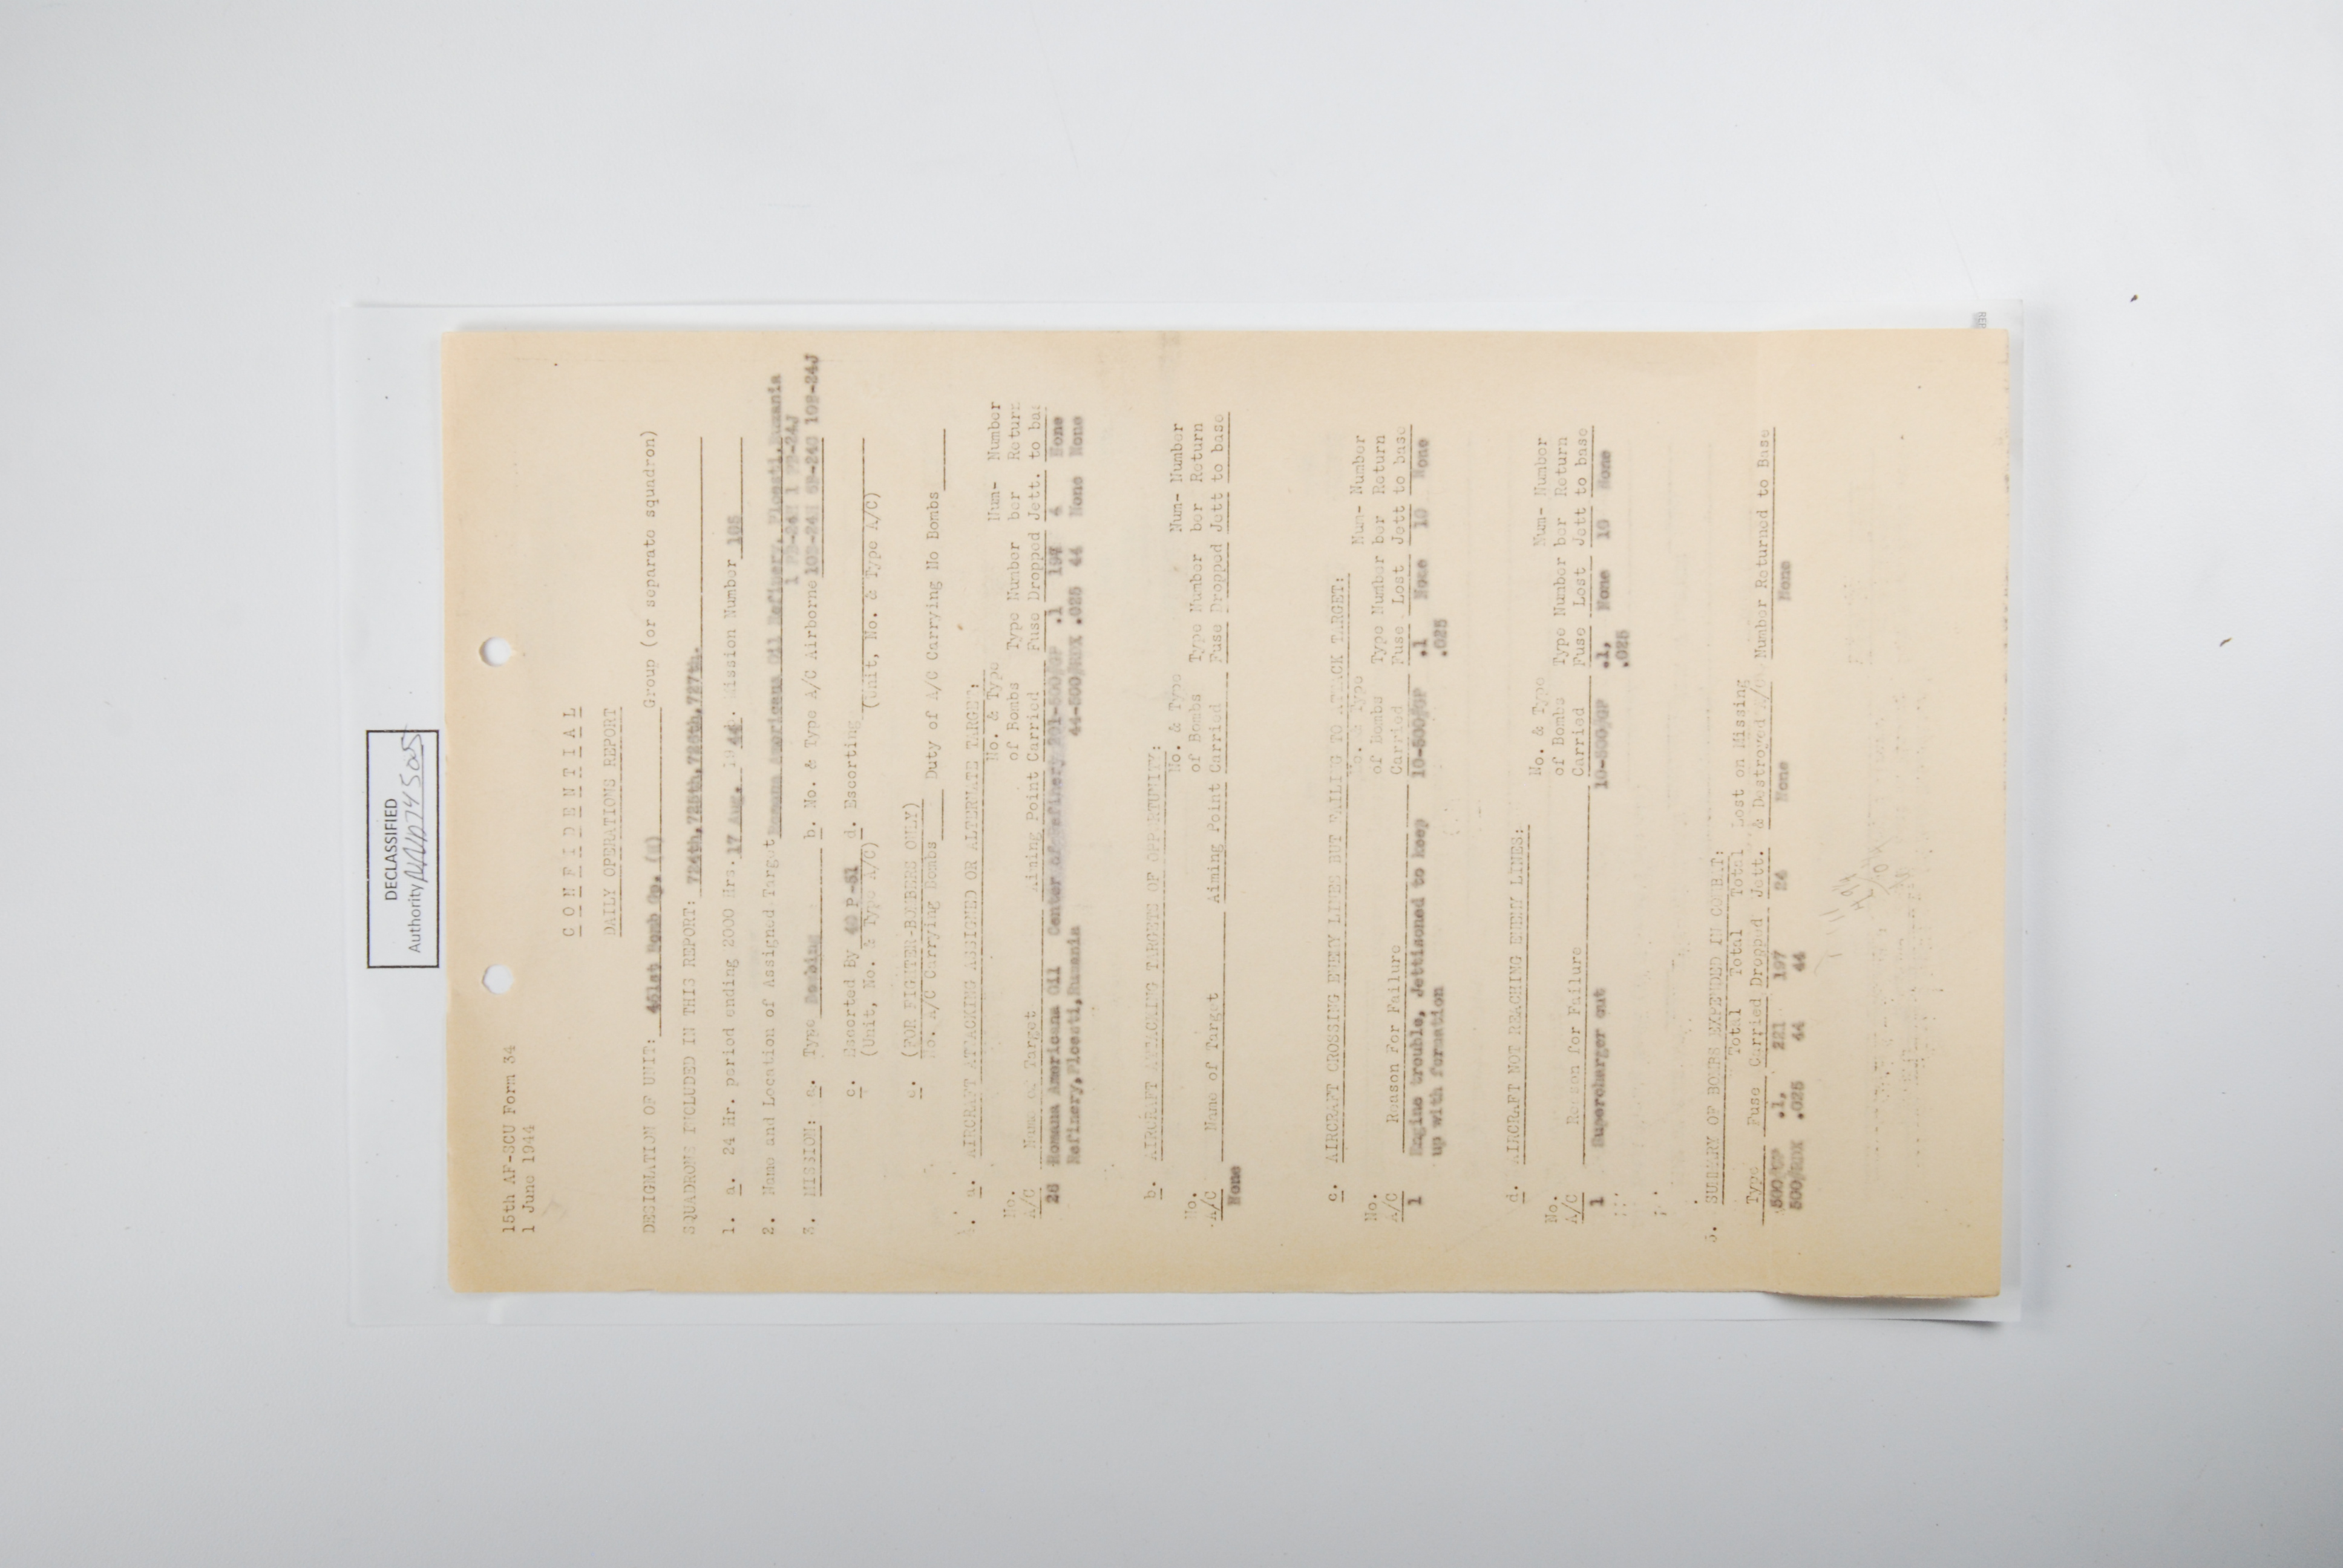 DECLASSIFIED
Authority NND745005
15th AF-SCU Form 34
1 June 1944
CONFIDENTIAL
DAILY OPERATIONS REPORT
DESIGNATION OF UNIT: 451st Bomb Gp. (H) Group (or separate squadron)
SQUADRONS INCLUDED IN THIS REPORT: 724th,725th,726th,727th.
1. a. 24 Hr. period ending 2000 Hrs. 17 Aug. 1944. Mission Number 105
2. Name and Location of Assigned Target Romana Americana Oil Refinery, Ploesti, Rumania
3. MISSION: a. Type Bombing b. No. & Type A/C Airborne 10B-24H 6B-24G 10B-24J
c. Escorted By 40 P-51 d. Escorting
(Unit, No. & Type A/C) (Unit, No. & Type A/C)
e. (FOR FIGHTER-BOMBERS ONLY)
No. A/C Carrying Bombs Duty of A/C Carrying No Bombs
a. AIRCRAFT ATTACKING ASSIGNED OR ALTERNATE TARGET:
No. & Type Num- Number
No. of Bombs Type Number ber Return
A/C Name of Target Aiming Point Carried Fuse Dropped Jett. to bas
26 Romana Americana Oil Center of Refinery 201-500/GP .1 197 4 None
Refinery, Ploesti, Rumania 44-500/RDX .025 44 None None
b. AIRCRAFT ATTACKING TARGETS OF OPPORTUNITY:
No. & Type Num- Number
No. of Bombs Type Number ber Return
A/C Name of Target Aiming Point Carried Fuse Dropped Jett to base
None
c. AIRCRAFT CROSSING ENEMY LINES BUT FAILING TO ATTACK TARGET:
No. & Type Num- Number
No. of Bombs Type Number ber Return
A/C Reason For Failure Carried Fuse Lost Jett to base
1 Engine trouble, Jettisoned to keep 10-500/GP .1 None 10 None
up with formation .025
d. AIRCRAFT NOT REACHING ENEMY LINES:
No. & Type Num- Number
No. of Bombs Type Number ber Return
A/C Reason for Failure Carried Fuse Lost Jett to base
1 Supercharger out 10-500/GP .1, None 10 None
.025
5. SUMMARY OF BOMBS EXPENDED IN COMBAT:
Total Total Total Lost on Missing
Type Fuse Carried Dropped Jett. & Destroyed A/C Number Returned to Base
500/GP .1, 221 197 24 None None
500/RDX .025 44 44